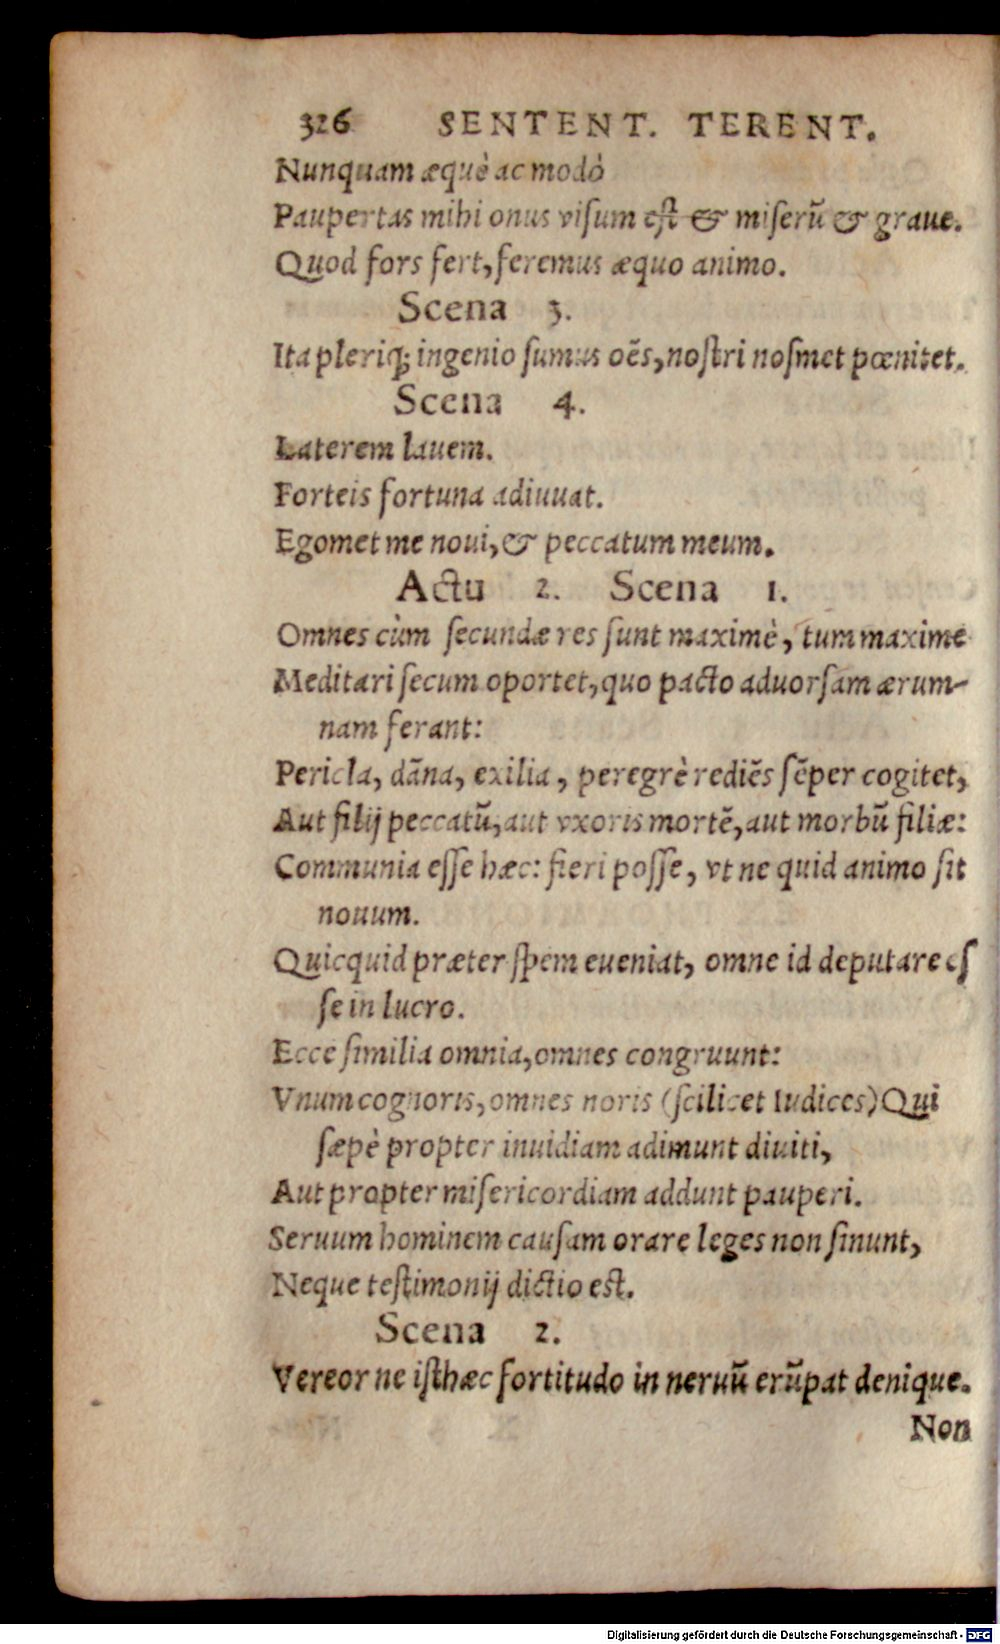 326 SENTENT. TERENT.
Nunquam æquè ac modò
Paupertas mihi onus viſum eſt & miſerũ & graue.
Quod fors fert, feremus æquo animo.
Scena 3.
Ita pleriq; ingenio ſumus oẽs, noſtri noſmet pœnitet.
Scena 4.
Laterem lauem.
Forteis fortuna adiuuat.
Egomet me noui, & peccatum meum.
Actu 2. Scena 1.
Omnes cùm ſecundæ res ſunt maximè, tum maxime
Meditari ſecum oportet, quo pacto aduorſam ærum-
nam ferant:
Pericla, dãna, exilia, peregrè rediẽs ſẽper cogitet,
Aut filij peccatũ, aut vxoris mortẽ, aut morbũ filiæ:
Communia eſſe hæc: fieri poſſe, vt ne quid animo ſit
nouum.
Quicquid præter ſpem eueniat, omne id deputare eſ
ſe in lucro.
Ecce ſimilia omnia, omnes congruunt:
Vnum cognoris, omnes noris (ſcilicet Iudices) Qui
ſæpè propter inuidiam adimunt diuiti,
Aut propter miſericordiam addunt pauperi.
Seruum hominem cauſam orare leges non ſinunt,
Neque teſtimonij dictio eſt.
Scena 2.
Vereor ne iſthæc fortitudo in neruũ erũpat denique.
Non
Digitalisierung gefördert durch die Deutsche Forschungsgemeinschaft - DFG